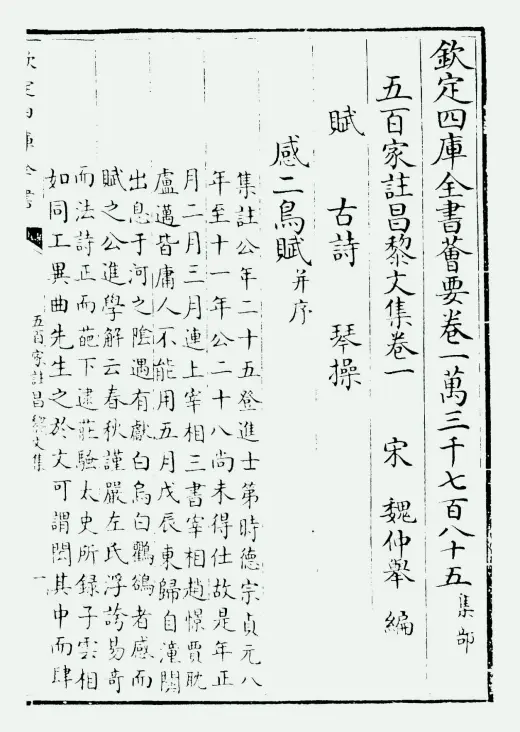 欽定四庫全書薈要卷一萬三千七百八十五 集部
五百家註昌黎文集卷一 宋 魏仲舉 編
賦 古詩 琴操
感二鳥賦并序
集註公年二十五登進士第時德宗貞元八
年至十一年公二十八尚未得仕故是年正
月二月三月連上宰相三書宰相趙憬賈耽
盧邁皆庸人不能用五月戊辰東歸自潼關
出息于河之陰遇有獻白烏白鸜鵒者感而
賦之公進學解云春秋謹嚴左氏浮誇易奇
而法詩正而葩下逮莊騷太史所録子雲相
如同工異曲先生之於文可謂閎其中而肆
欽定四庫全書
五百家註昌黎文集
一